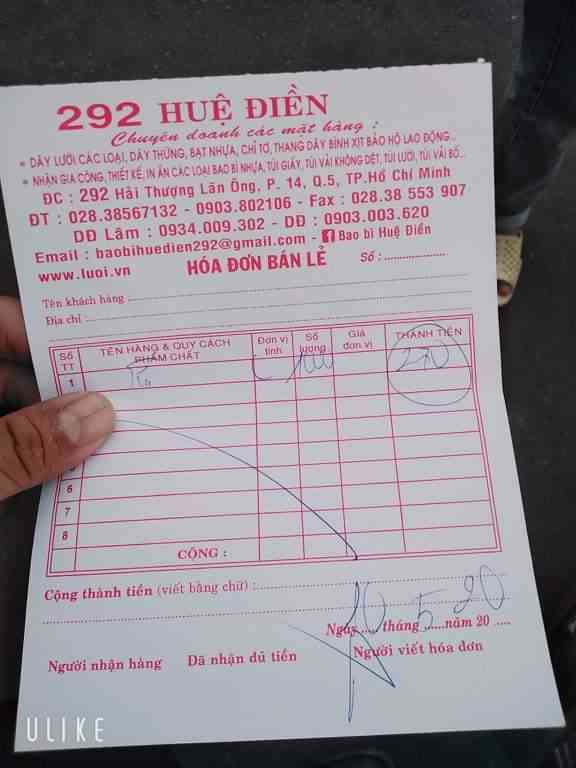 292 HUỆ ĐIỀN
Chuyên doanh các mặt hàng :
* DÂY LƯỚI CÁC LOẠI, DÂY THỪNG, BẠT NHỰA, CHỈ TƠ, THANG DÂY BÌNH XỊT BẢO HỘ LAO ĐỘNG...
* NHẬN GIA CÔNG, THIẾT KẾ, IN ẤN CÁC LOẠI BAO BÌ NHỰA, TÚI GIẤY, TÚI VẢI KHÔNG DỆT, TÚI LƯỚI, TÚI VẢI BỐ...
ĐC : 292 Hải Thượng Lãn Ông, P. 14, Q.5, TP.Hồ Chí Minh
ĐT : 028.38567132 - 0903.802106 - Fax : 028.38 553 907
DĐ Lâm : 0934.009.302 - DĐ : 0903.003.620
Email : baobihuedien292@gmail.com - f Bao bì Huệ Điền
www.luoi.vn HÓA ĐƠN BÁN LẺ Số : ....................
Tên khách hàng
Địa chỉ :
Số TT TÊN HÀNG & QUY CÁCH PHẨM CHẤT Đơn vị tính Số lượng Giá đơn vị THÀNH TIỀN
1 270
6
7
8
CỘNG :
Cộng thành tiền (viết bằng chữ) :
Ngày 10 tháng 5 năm 20 20
Người nhận hàng Đã nhận đủ tiền Người viết hóa đơn
ULIKE